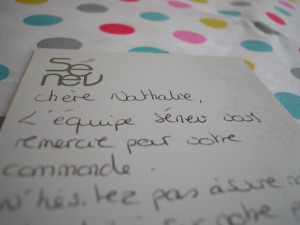 Sé
neu
chère Nathalie,
L'équipe Séneu vous
remercie pour votre
commande.
N'hésitez pas à
votre